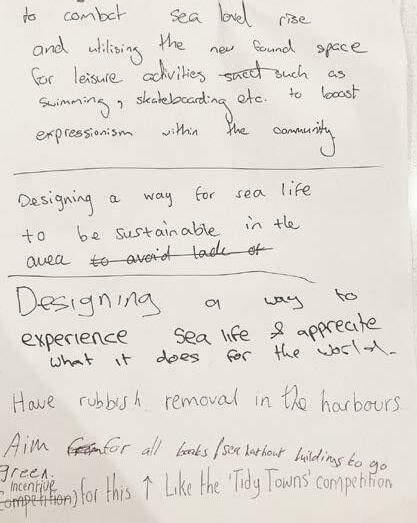 to combat sea level rise
and utilising the new found space
for leisure activities such as
swimming, skateboarding etc. to boost
expressionism within the community
Designing a way for sea life
to be sustainable in the
area to avoid lack of
Designing a way to
experience sea life & apprecate
what it does for the world.
Have rubbish removal in the harbours
Aim for all boats/sea harbour buildings to go
green.
Incentive
(competition) for this ↑ Like the 'Tidy Towns' competition